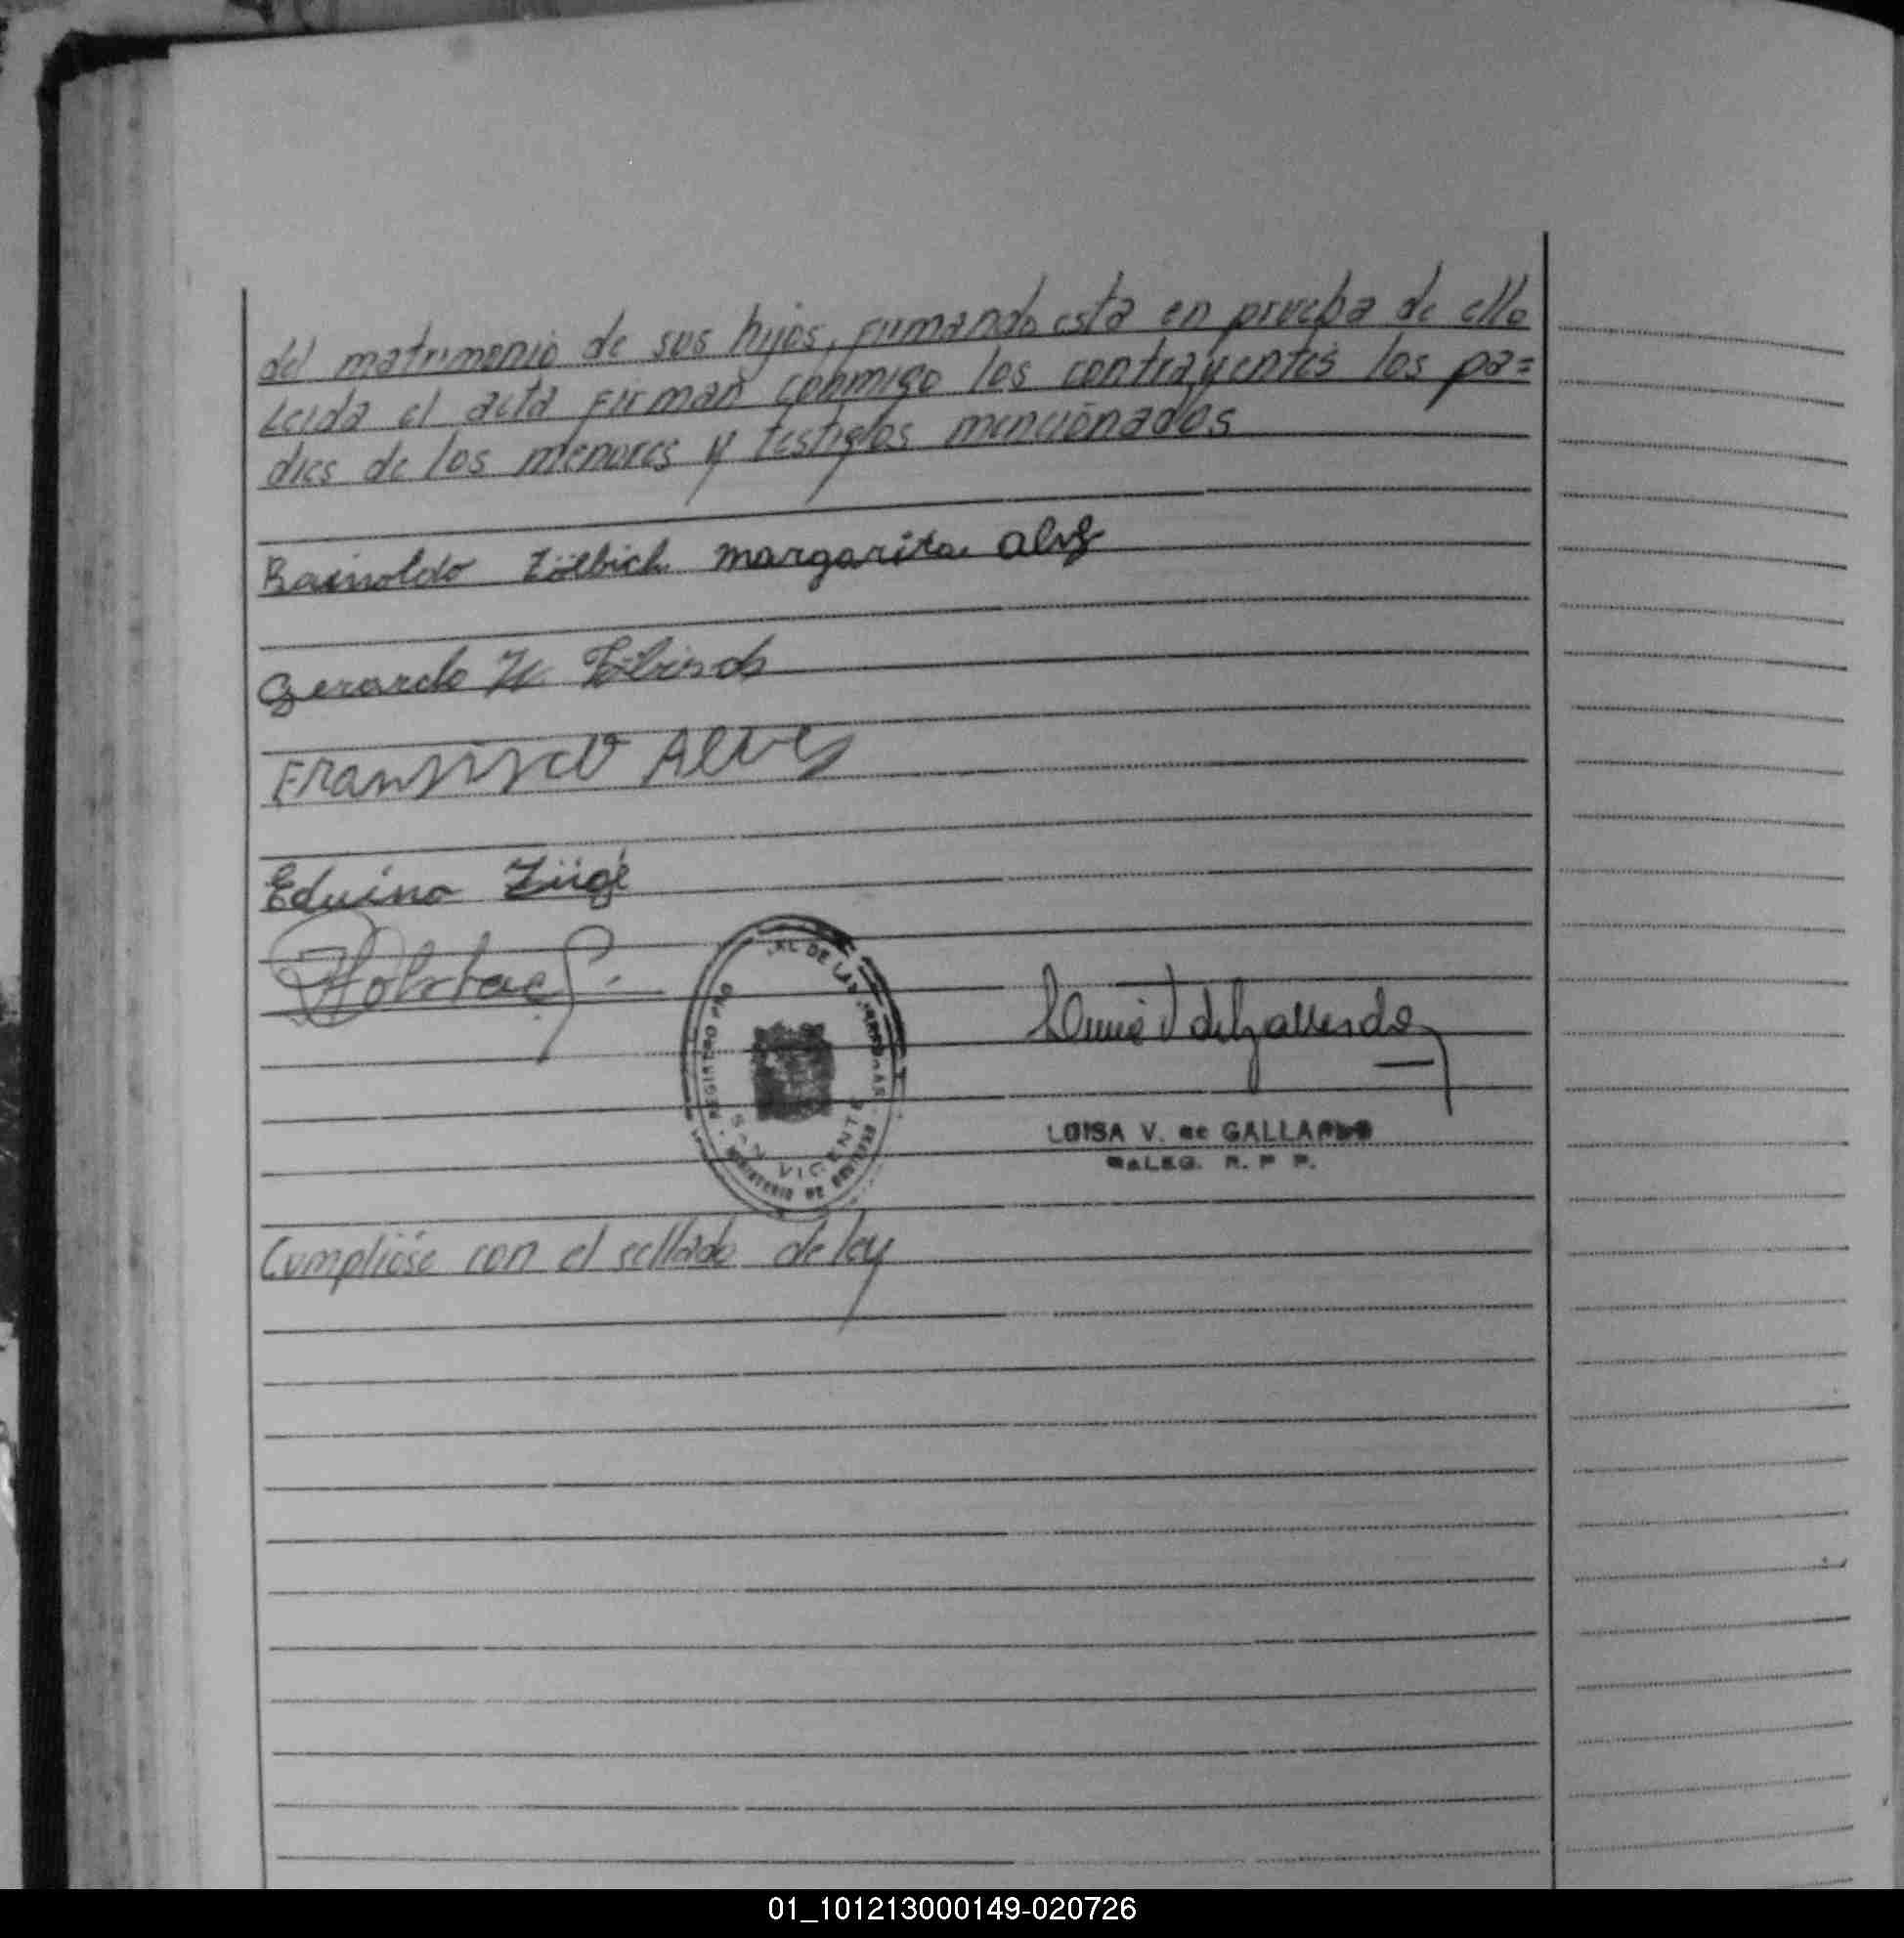 del matrimonio de sus hijos, firmando esta en prueba de ello
Leida el acta firman conmigo los contrayentes los pa=
dres de los menores y testigos mencionados
Rainoldo Zölbich Margarita Alves
Gerardo
Fransisco Alves
Eduino Züge
REGISTRO PRO DE LAS PERSONAS
SAN VICENTE
MINISTERIO DE GOBIERNO
LUISA V. de GALLARDO
DELEG. R. P. P.
Cumplióse con el sellado de ley
01_101213000149-020726